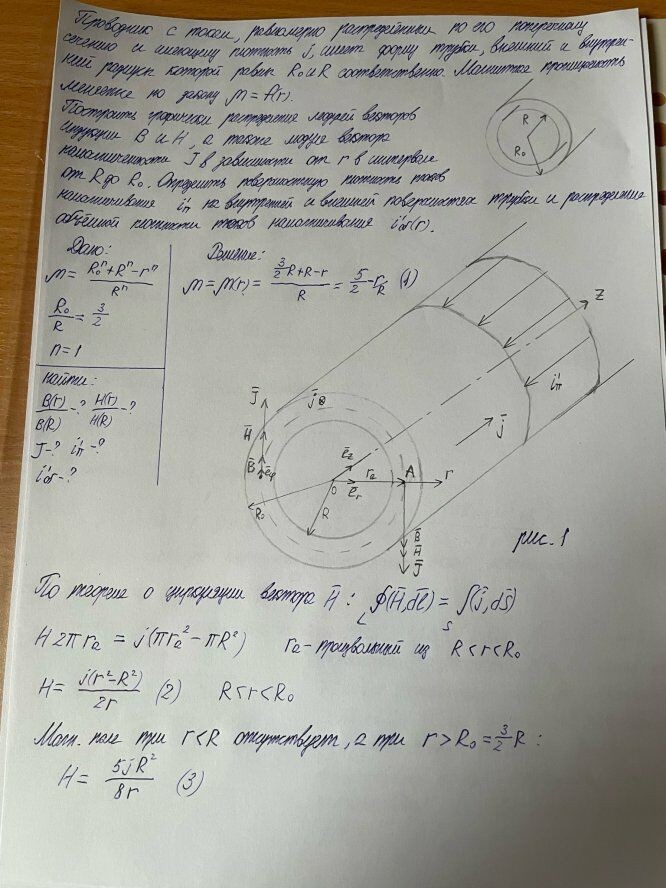 Проводник с током, равномерно распределённым по его поперечному
сечению и имеющему плотность j, имеет форму трубки, внешний и внутрен-
ний радиусы которой равны R₀ и R соответственно. Магнитная проницаемость
меняется по закону μ = f(r).
Построить графически распределения модулей векторов
индукции B и H, а также модуля вектора
намагниченности J в зависимости от r в интервале
от R до R₀. Определить поверхностную плотность токов
намагничивания i'п на внутренней и внешней поверхностях трубки и распределение
объёмной плотности токов намагничивания i'об(r).
R
R₀
Дано:
μ = (R₀ⁿ+Rⁿ-rⁿ)/Rⁿ
R₀/R = 3/2
n=1
Найти:
B(r)/B(R) -? H(r)/H(R) -?
J-? i'п -?
i'об-?
Решение:
μ = μ(r) = (3/2 R+R-r)/R = 5/2 - r/R (1)
z
i'п
j̄
J̄
H̄
B̄
ēφ
j ⊗
ēz
rₐ
A
r
O
ēr
R₀
R
B̄
H̄
J̄
рис. 1
По теореме о циркуляции вектора H̄ : ∮L(H̄,dl̄) = ∫S(j̄,ds̄)
H2πrₐ = j(πrₐ²-πR²) rₐ-произвольный из R<r<R₀
H = j(r²-R²)/2r (2) R<r<R₀
Магн. поле при r<R отсутствует, а при r>R₀=3/2R :
H = 5jR²/8r (3)